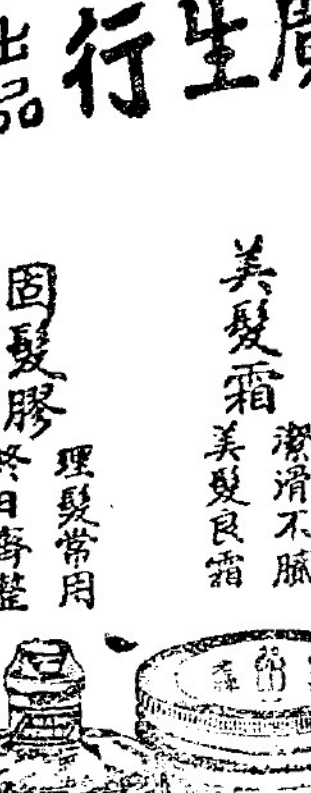 廣生行出品
美髮霜
潔滑不膩
美髮良霜
固髮膠
理髮常用
終日齊整